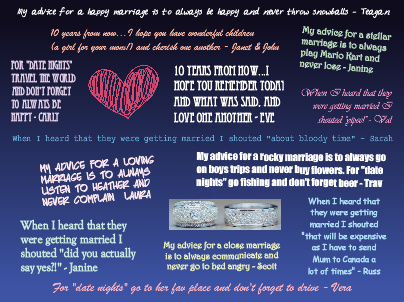 My advice for a happy marriage is to always be happy and never throw snowballs - Teagan
10 years from now...I hope you have wonderful children
(a girl for your mom!) and cherish one another - Janet & John
My advice for a stellar
marriage is to always
play Mario Kart and
never lose - Janine
FOR "DATE NIGHTS"
TRAVEL THE WORLD
AND DON'T FORGET
TO ALWAYS BE
HAPPY - CARLY
10 YEARS FROM NOW...I
HOPE YOU REMEMBER TODAY
AND WHAT WAS SAID, AND
LOVE ONE ANOTHER - EVE
When I heard that they
were getting married I
shouted "yipee!" - Val
When I heard that they were getting married I shouted "about bloody time" - Sarah
MY ADVICE FOR A LOVING
MARRIAGE IS TO ALWAYS
LISTEN TO HEATHER AND
NEVER COMPLAIN LAURA
My advice for a rocky marriage is to always go
on boys trips and never buy flowers. For "date
nights" go fishing and don't forget beer - Trav
When I heard that they
were getting married I
shouted "did you actually
say yes?!" - Janine
My advice for a close marriage
is to always communicate and
never go to bed angry - Scott
When I heard that
they were getting
married I shouted
"that will be expensive
as I have to send
Mum to Canada a
lot of times" - Russ
For "date nights" go to her fav place and don't forget to drive - Vera